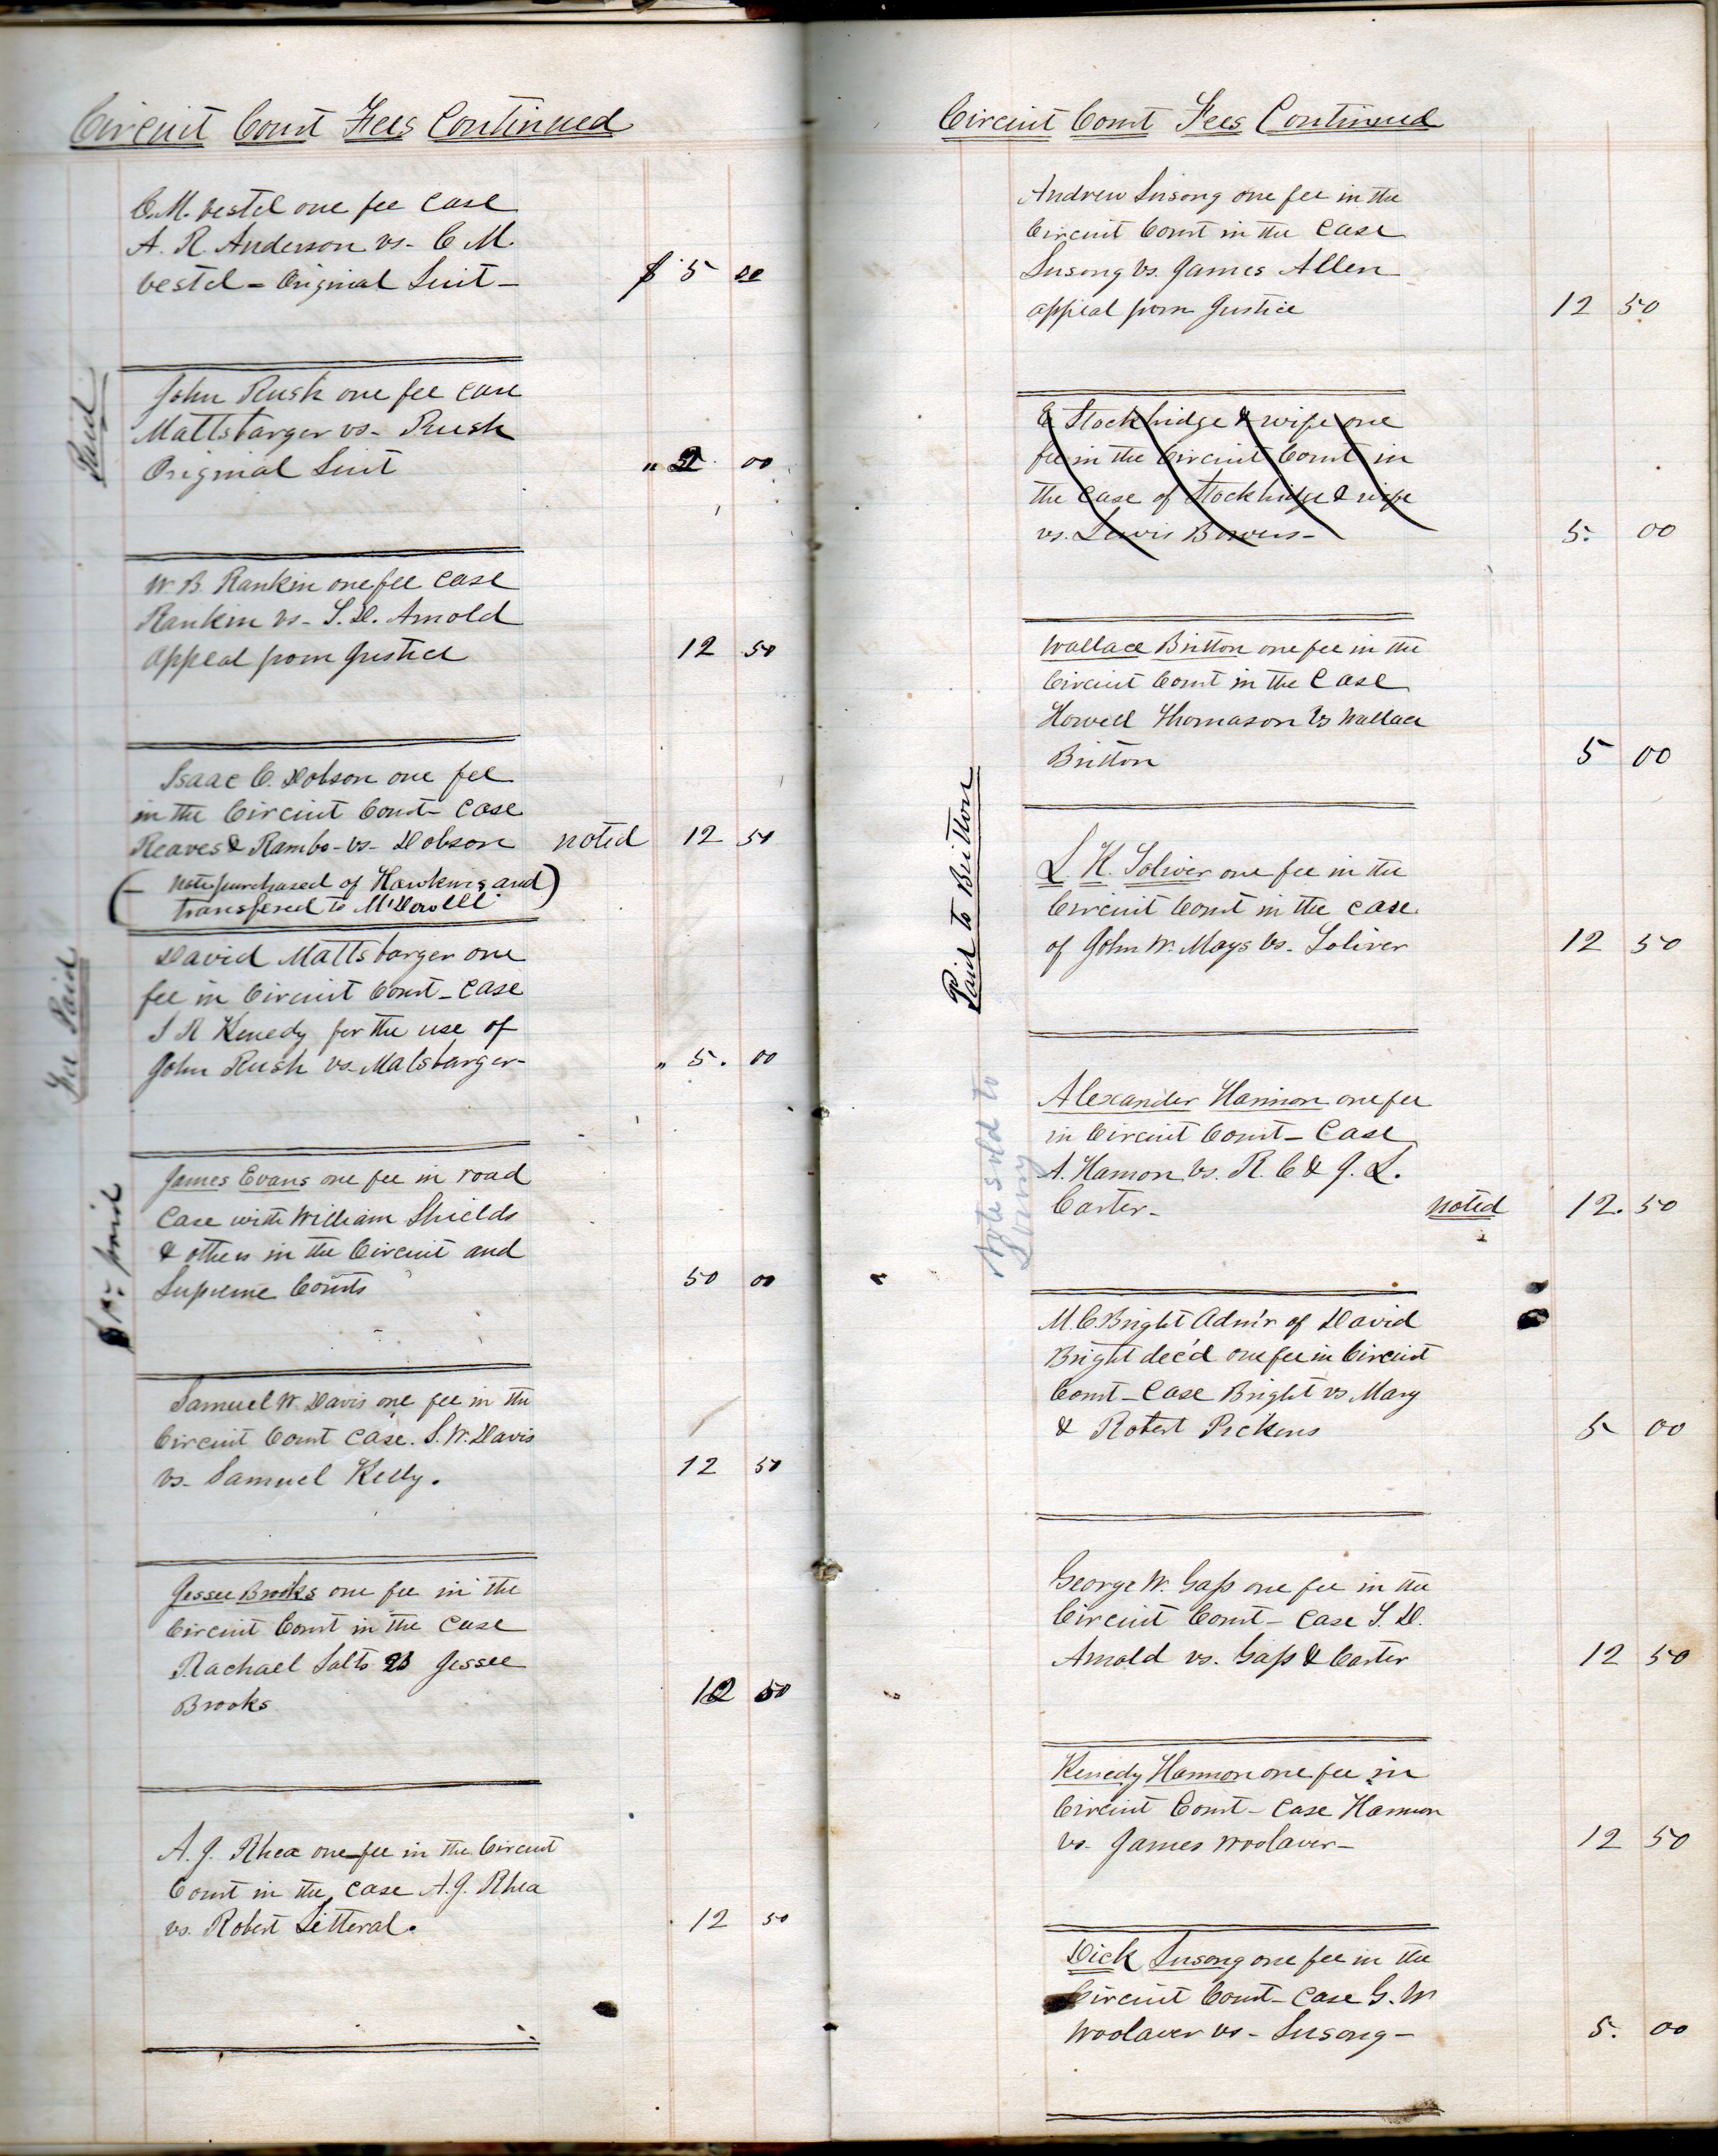 Circuit Court Fees Continued
C. M. Vestel one fee case
A. R. Anderson vs- C M.
Vestel - Original Suit - $ 5 00
Paid
John Rush one fee case
Mattsbarger vs- Rush
Original Suit " 00
W. B. Rankin one fee case
Rankin vs- S. D. Arnold
Appeal from Justice 12 50
Isaac C. Dobson one fee
in the Circuit Court- case
Reaves & Rambo - vs- Dobson noted 12 50
(- note purchased of Hawkins and)
transfered to McDowell
Fee Paid
David Mattsbarger one
fee in Circuit Court - case
S R Kenedy for the use of
John Rush vs- Malsbarger- " 5. 00
paid
James Evans one fee in road
Case with William Shields
& others in the Circuit and
Supreme Courts 50 00
Samuel W. Davis one fee in the
Circuit Court case. S. W. Davis
vs- Samuel Kelly. 12 50
Jessee Brooks one fee in the
Circuit Court in the case
Rachael Salts vs Jessee
Brooks 12 50
A. J. Rhea one fee in the Circuit
Court in the case A. J. Rhea
vs. Robert Litteral. 12 50
Circuit Court Fees Continued
Andrew Susong one fee in the
Circuit Court in the case
Susong vs. James Allen
appeal from Justice 12 50
E Stockbridge & wife one
fee in the Circuit Court in
the case of Stockbridge & wife
vs. Lewis Bowers- 5. 00
Wallace Britton one fee in the
Circuit Court in the case
Howell Thomason vs Wallace
Britton 5 00
Paid to Britton
L. K. Toliver one fee in the
Circuit Court in the case
of John W. Mays vs. Toliver 12 50
Note sold to
Lowry
Alexander Harmon one fee
in Circuit Court - Case
A. Harmon vs. R. C & J. L.
Carter- noted 12. 50
M. C Bright Adm'r of David
Bright dec'd one fee in Circuit
Court - Case Bright vs Mary
& Robert Pickens 5 00
George W. Gass one fee in the
Circuit Court - case S. D.
Arnold vs. Gass & Carter 12 50
Kenedy Harmon one fee in
Circuit Court - case Harmon
vs. James Woolaver- 12 50
Dick Susong one fee in the
Circuit Court - case G. W
Woolaver vs- Susong- 5. 00